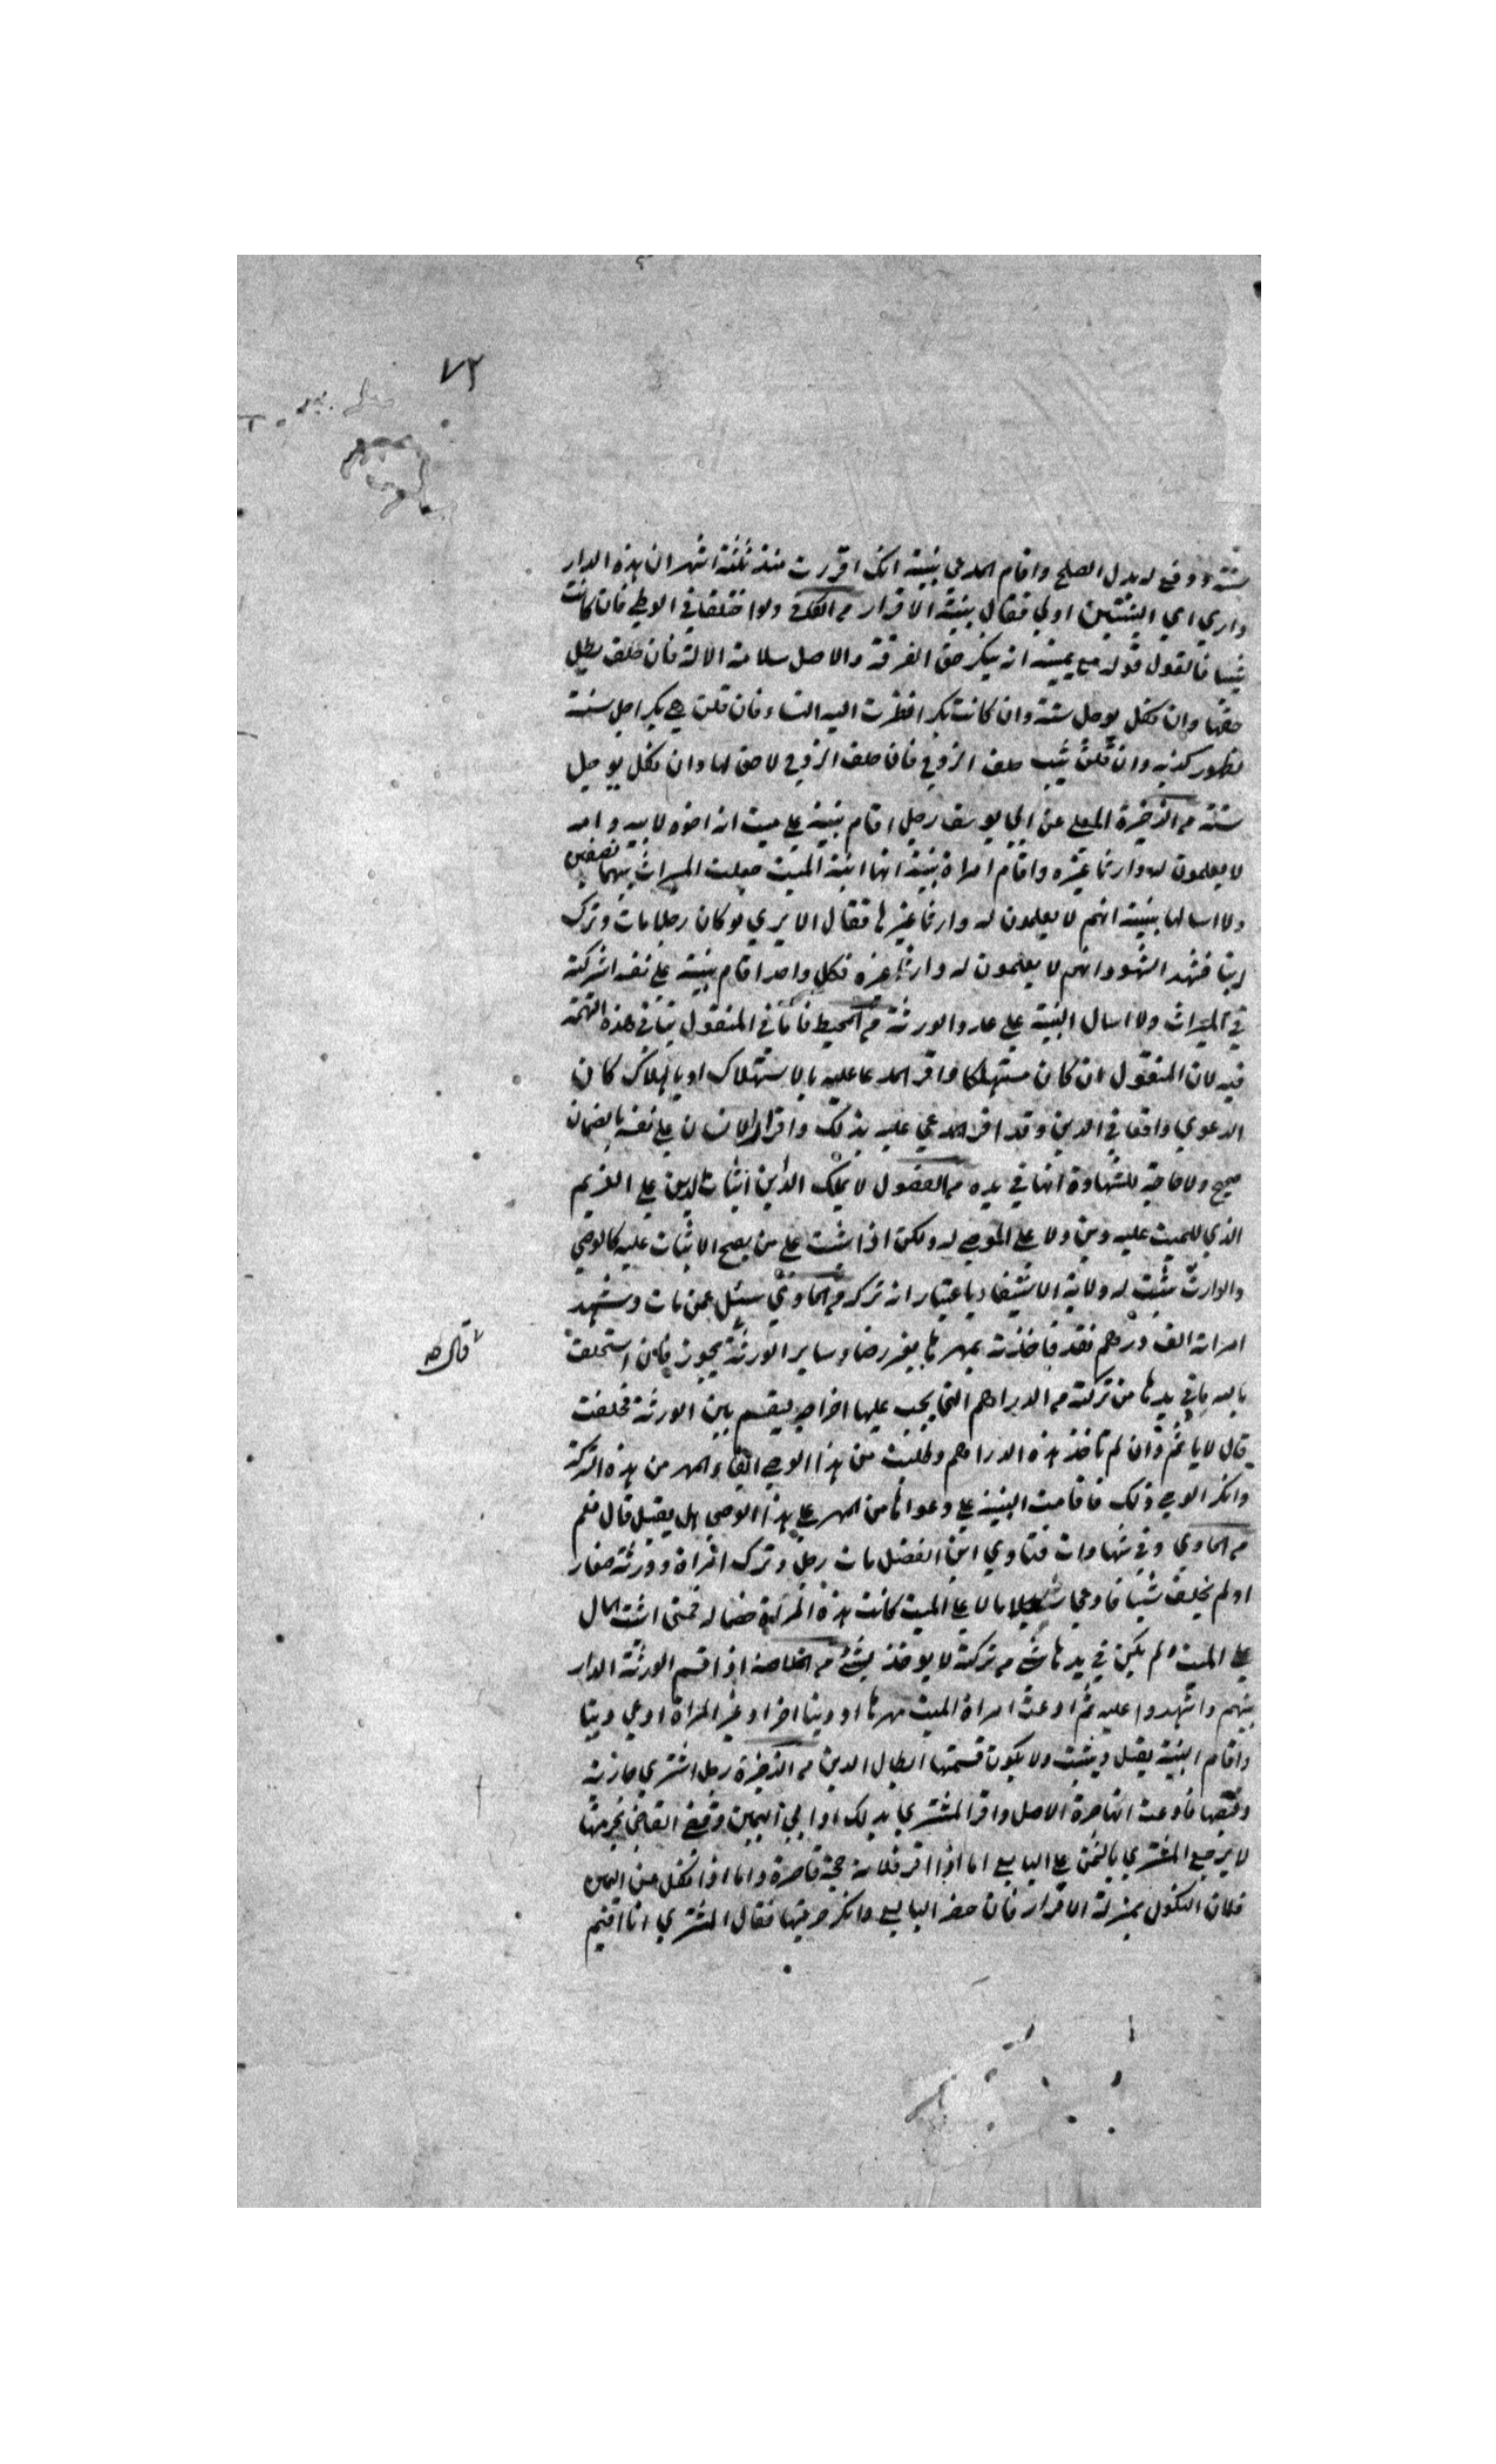 ٧٢
سنة ودفع له بدل الصلح واقام المدعي بينة انك اقررت منذ ثلثة اشهر ان هذه الدار
داري اي البينتين اولي فقال بينة الاقرار ولو اختلفا في الوطي فان كانت
ثيبا فالقول قوله مع يمينه انه ينكر حق الفرقة والاصل سلامة الالة فان حلف بطل
حقها وان نكل يوجل سنة وان كانت بكرا نظرت اليه النساء فان قلن هي بكر اجل سنة
لظهور كذبه وان قلن ثيب حلف الزوج فان حلف الزوج لا حق لها وان نكل يوجل
سنة من الذخيرة المعلي عن ابي يوسف رجل اقام بينة علي ميت انه اخوه لابيه وامه
لا يعلمون له وارثا غيره واقام امراة بينة انها ابنة الميت جعلت الميراث بينهما نصفين
ولا اسالها بينة انهم لا يعلمون له وارثا غيرها فقال الا يري لو كان رجلا مات وترك
ابنا فشهد الشهود انهم لا يعلمون له وارثا غيره فكل واحد اقام بينة علي نفسه اشركته
في الميراث ولا اسال البينة علي عدد الورثة من المحيط فاما في المنقول يتاتي هذه التهمة
فيه لان المنقول ان كان مستهلكا واقر المدعا عليه بالاستهلاك او بالهلاك كان
الدعوي واقعا في الدين وقد اقر المدعي عليه بذلك واقرار الانسان علي نفسه بالضمان
صحيح ولا حاجة للشهادة انها في يده من الفصول لا يملك الداين اثبات الدين علي الغريم
الذي للميت عليه دين ولا علي الموصي له ولكن اذا اثبت علي من يصح الاثبات عليه كالوصي
والوارث يثبت له ولاية الاستيفاء باعتبار انه تركه من الحاوي سئل عمن مات وشهد
امراته الف درهم نقد فاخذته بمهرها بغير رضاء ساير الورثة يجوز فان استحلفت
بالله ما في يدها من تركته من الدراهم التي يجب عليها اخراجه ليقسم بين الورثة فحلفت
قال لا ياثم وان لم تاخذ هذه الدراهم وطلبت من هذا الوصي ايفاء المهر من هذه التركة
وانكر الوصي ذلك فاقامت البينة علي دعواها من المهر علي هذا الوصي هل يقبل قال نعم
من الحاوي وفي شهادات فتاوي ابي الفضل مات رجل وترك امراة وورثة صغار
او لم يخلف شيا فادعي مالا علي الميت كانت هذه المراة خصما له فمتي اثبت المال
علي الميت ولم يكن في يدها شي من تركته لا يوخذ بشي من الخلاصة اذا قسم الورثة الدار
بينهم واشهدوا عليه ثم ادعت امراة الميت مهرها او دينا اخر او غير المراة ادعي دينا
واقام البينة يقبل ويثبت ولا يكون قسمتها ابطال الدين من الذخيرة رجل اشتري جارية
وقبضها فادعت انها حرة الاصل واقر المشتري بذلك او ابي اليمين وقضي القاضي بحريتها
لا يرجع المشتري بالثمن علي البايع اما اذا اقر فلانه حجة قاصرة واما اذا نكل من اليمين
فلان النكول بمنزلة الاقرار فان حضر البايع وانكر حريتها فقال المشتري انا اقيم